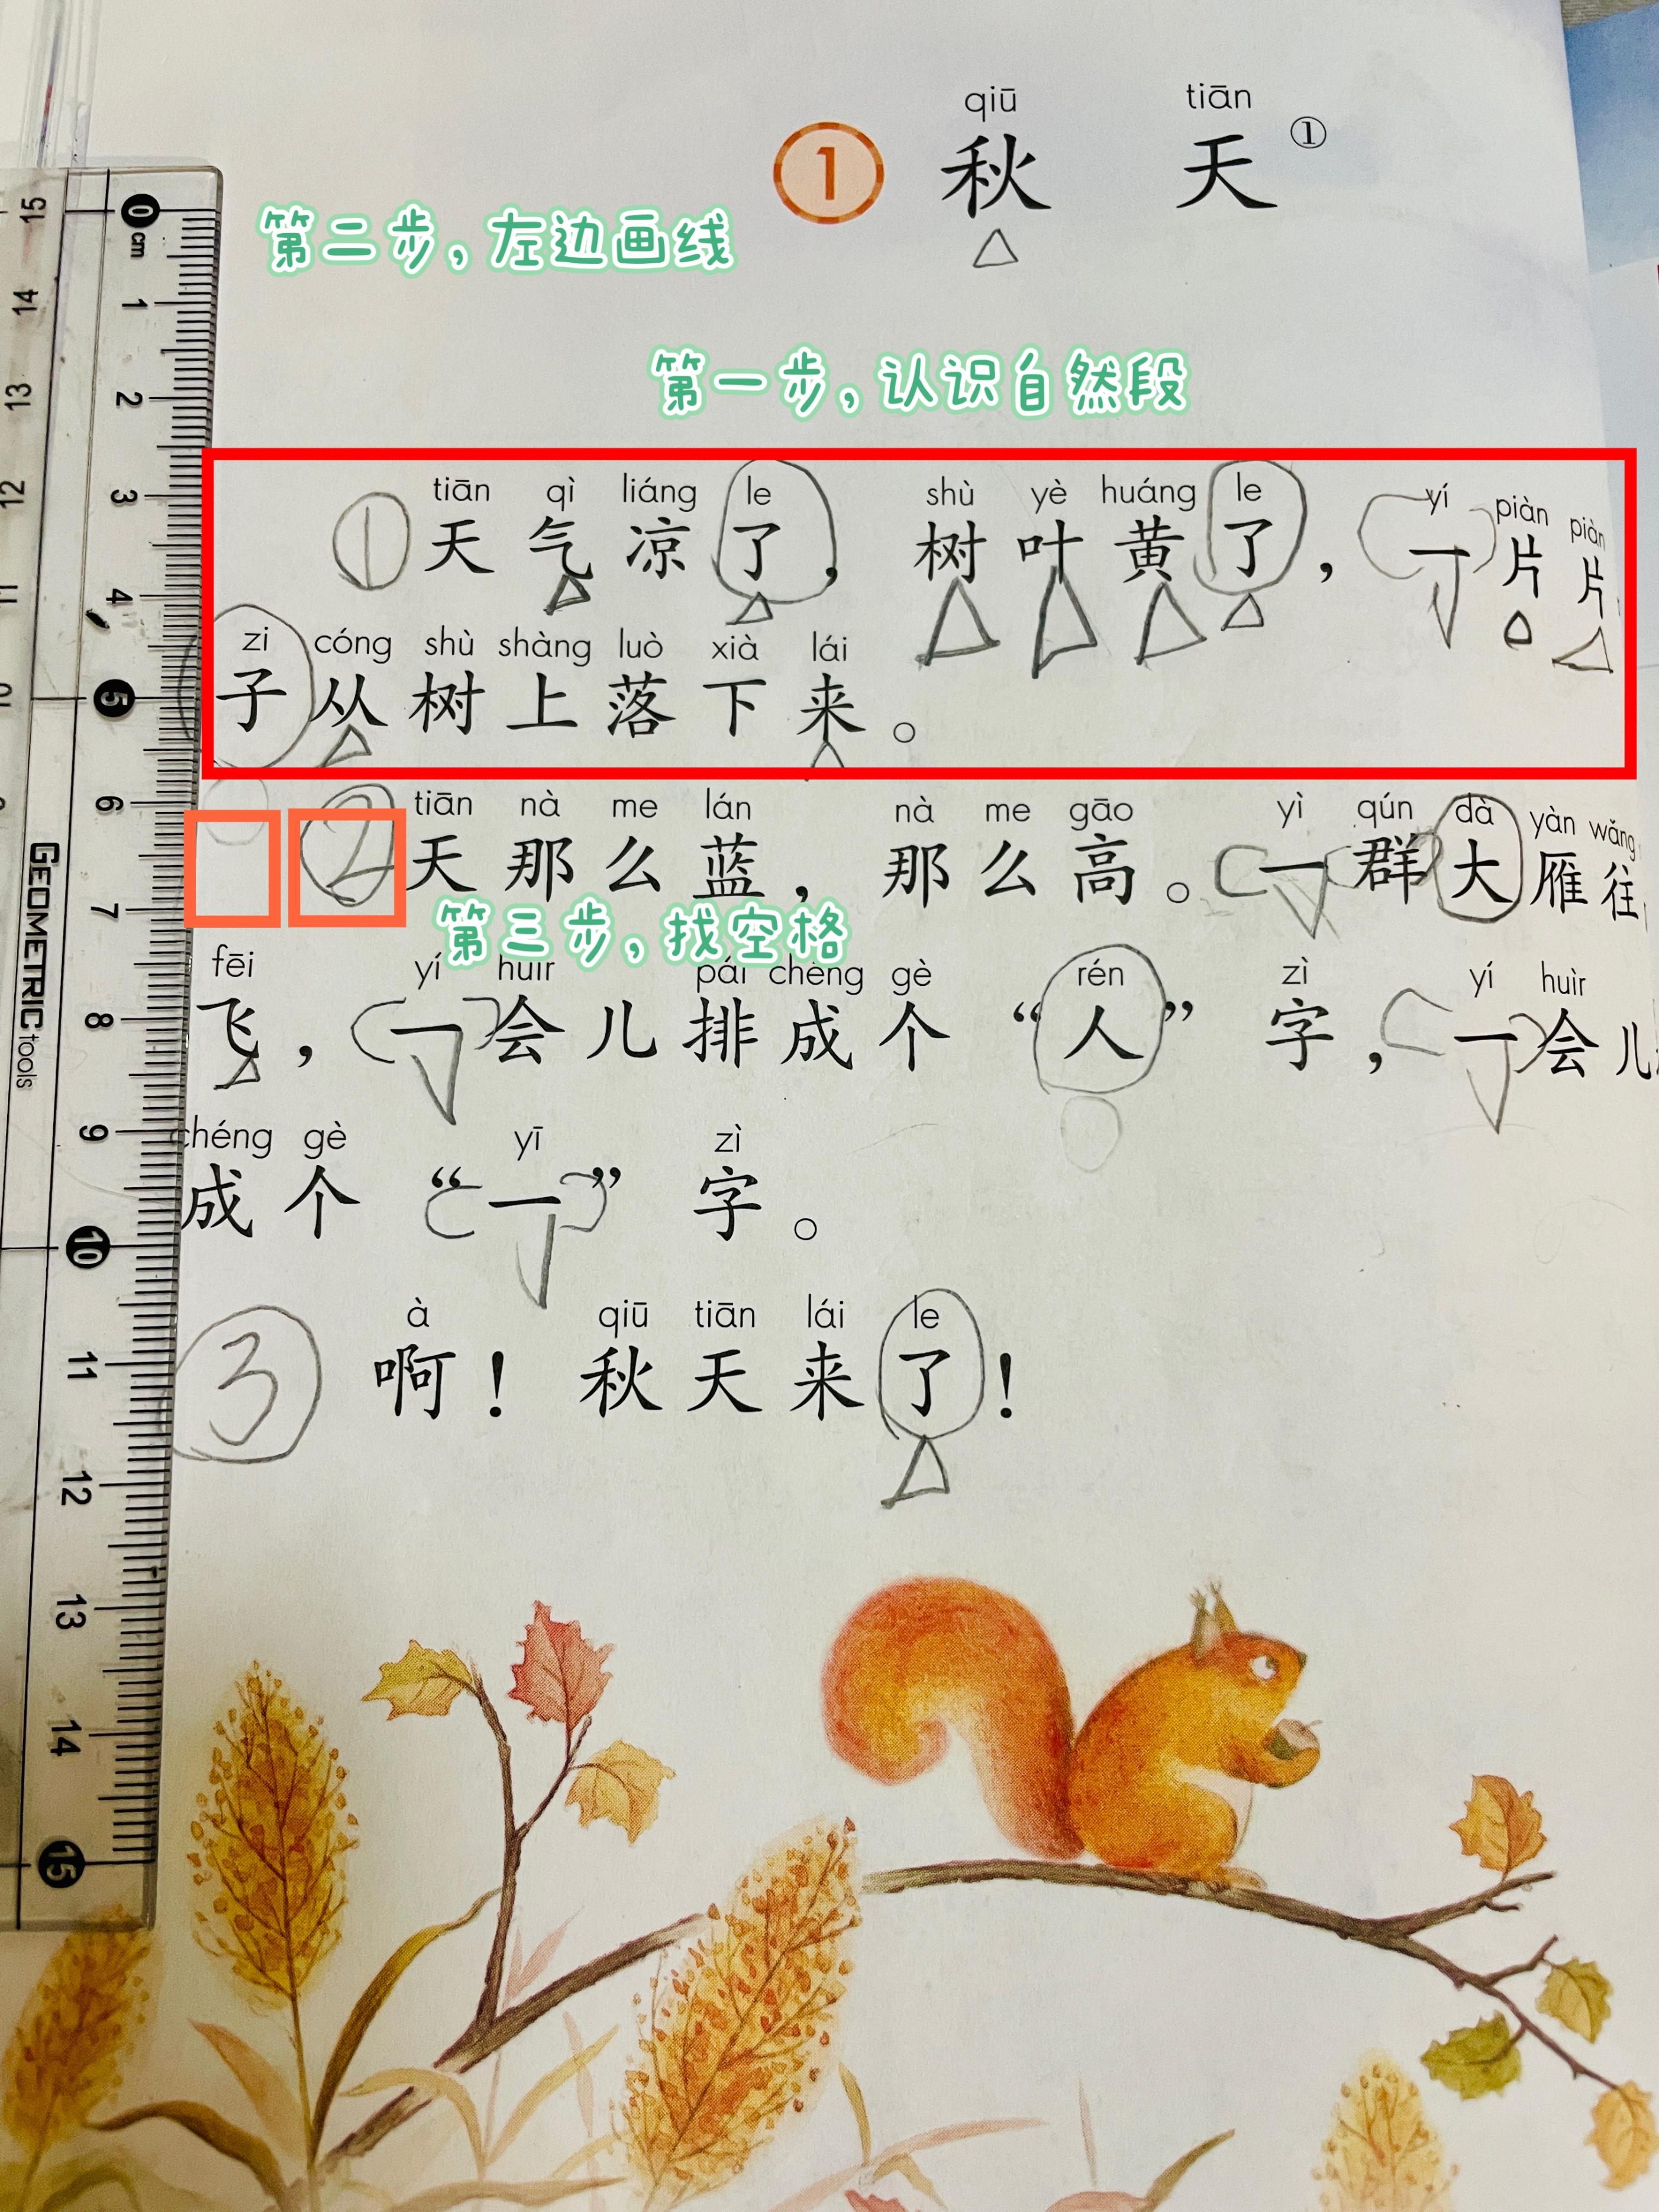 qiū tiān
1 秋 天 ①
第二步，左边画线
第一步，认识自然段
tiān qì liáng le shù yè huáng le yí piàn piàn
① 天气凉了，树叶黄了，一片片
zi cóng shù shàng luò xià lái
子从树上落下来。
tiān nà me lán nà me gāo yì qún dà yàn wǎng
② 天那么蓝，那么高。一群大雁往
第三步，找空格
fēi yí huìr pái chéng gè rén zì yí huìr
飞，一会儿排成个“人”字，一会儿
chéng gè yī zì
成个“一”字。
à qiū tiān lái le
③ 啊！秋天来了！
0 cm 1 2 3 4 5 6 7 8 9 10 11 12 13 14 15
15 14 13 12 11 10
GEOMETRIC tools